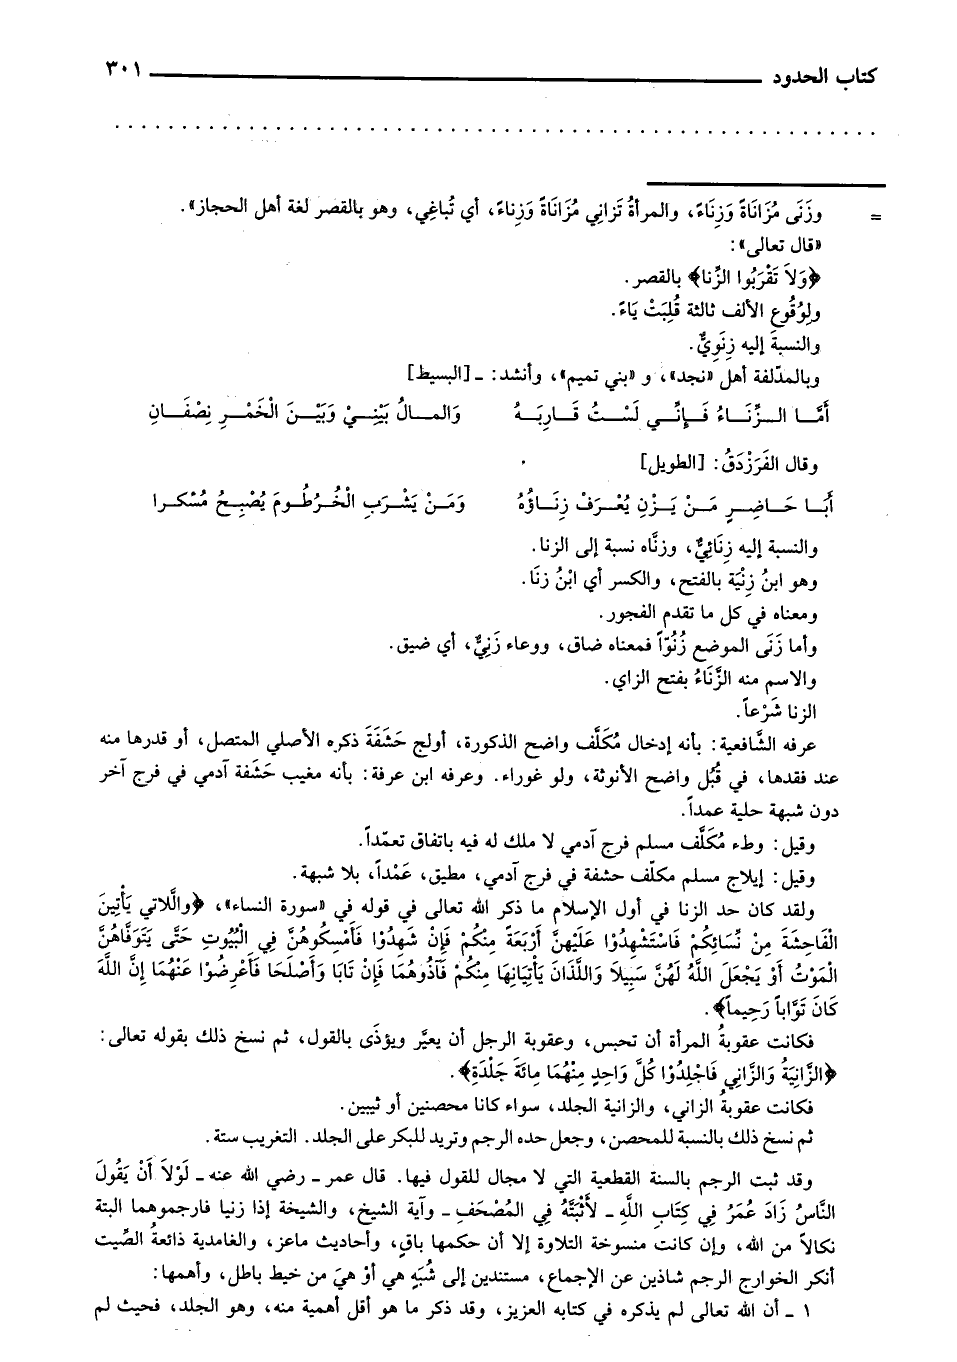 كتاب الحدود ٣٠١
= وزَنَى مُزَانَاةً وَزِنَاءً، والمرأةُ تَزانِي مُزَانَاةً وَزِناءً، أي تُباغِي، وهو بالقصر لغة أهل الحجاز».
«قال تعالى»:
﴿وَلاَ تَقْرَبُوا الزِّنا﴾ بالقصر.
ولِوُقُوع الألف ثالثة قُلِبَتْ يَاءً.
والنسبةَ إليه زِنَوِيٌّ.
وبالمدّلفة أهل «نجد»، و «بني تميم»، وأنشد: ـ [البسيط]
أَمَّا الزِّنَاءُ فَإِنِّي لَسْتُ قَارِبَهُ وَالمالُ بَيْنِيْ وَبَيْنَ الْخَمْرِ نِصْفَانِ
وقال الفَرَزْدَقُ: [الطويل]
أَبَا حَاضِرٍ مَنْ يَزْنِ يُعْرَفْ زِنَاؤُهُ وَمَنْ يَشْرَبِ الْخُرطُومَ يُصْبِحُ مُسْكرا
والنسبة إليه زِنَائِيٌّ، وزنَّاه نسبة إلى الزنا.
وهو ابنُ زِنْيَة بالفتح، والكسر أي ابْنُ زنَا.
ومعناه في كل ما تقدم الفجور.
وأما زَنَى الموضع زُنُوّاً فمعناه ضاق، ووعاء زَنِيٌّ، أي ضيق.
والاسم منه الزَّنَاءُ بفتح الزاي.
الزنا شَرْعاً.
عرفه الشَّافعية: بأنه إدخال مُكَلَّف واضح الذكورة، أولج حَشَفَةَ ذكره الأصلي المتصل، أو قدرها منه
عند فقدها، في قُبُل واضح الأنوثة، ولو غوراء. وعرفه ابن عرفة: بأنه مغيب حَشَفة آدمي في فرج آخر
دون شبهة حلية عمداً.
وقيل: وطء مُكَلَّف مسلم فرج آدمي لا ملك له فيه باتفاق تعمّداً.
وقيل: إيلاج مسلم مكلّف حشفة في فرج آدمي، مطيق، عَمْداً، بلا شبهة.
ولقد كان حد الزنا في أول الإسلام ما ذكر الله تعالى في قوله في «سورة النساء»، ﴿واللَّاتي يَأْتِينَ
الْفَاحِشَةَ مِنْ نِسَائِكُمْ فَاسْتَشْهِدُوْا عَلَيْهِنَّ أَرْبَعَةً مِنْكُمْ فَإِنْ شَهِدُوْا فَأَمْسِكُوهُنَّ فِي الْبُيُوتِ حَتَّى يَتَوَفَّاهُنَّ
الْمَوْتُ أَوْ يَجْعَلَ اللَّهُ لَهُنَّ سَبِيلاً وَاللَّذَانَ يَأْتِيَانِهَا مِنْكُمْ فَآذُوهُمَا فَإِنْ تَابَا وَأَصْلَحَا فَأَعْرِضُوْا عَنْهُمَا إِنَّ اللَّهَ
كَانَ تَوَّاباً رَحِيماً﴾.
فكانت عقوبةُ المرأة أن تحبس، وعقوبة الرجل أن يعيَّر ويؤذَى بالقول، ثم نسخ ذلك بقوله تعالى:
﴿الزَّانِيَةُ وَالزَّانِي فَاجْلِدُوْا كُلَّ وَاحِدٍ مِنْهُمَا مِائَةَ جَلْدَةٍ﴾.
فكانت عقوبةُ الزاني، والزانية الجلد، سواء كانا محصنين أو ثيبين.
ثم نسخ ذلك بالنسبة للمحصن، وجعل حده الرجم وتريد للبكر على الجلد. التغريب ستة.
وقد ثبت الرجم بالسنة القطعية التي لا مجال للقول فيها. قال عمر ـ رضي الله عنه ـ لَوْلاَ أَنْ يَقُولَ
النَّاسُ زَادَ عُمَرُ فِي كِتَابِ اللَّهِ ـ لأَثْبَتَّهُ فِي المُصْحَفِ ـ وآية الشيخ، والشيخة إذا زنيا فارجموهما البتة
نكالاً من الله، وإن كانت منسوخة التلاوة إلا أن حكمها باقٍ، وأحاديث ماعز، والغامدية ذائعةُ الصِّيت
أنكر الخوارج الرجم شاذين عن الإجماع، مستندين إلى شُبَهٍ هي أوْ هيَ من خيط باطل، وأهمها:
١ ـ أن الله تعالى لم يذكره في كتابه العزيز، وقد ذكر ما هو أقل أهمية منه، وهو الجلد، فحيث لم